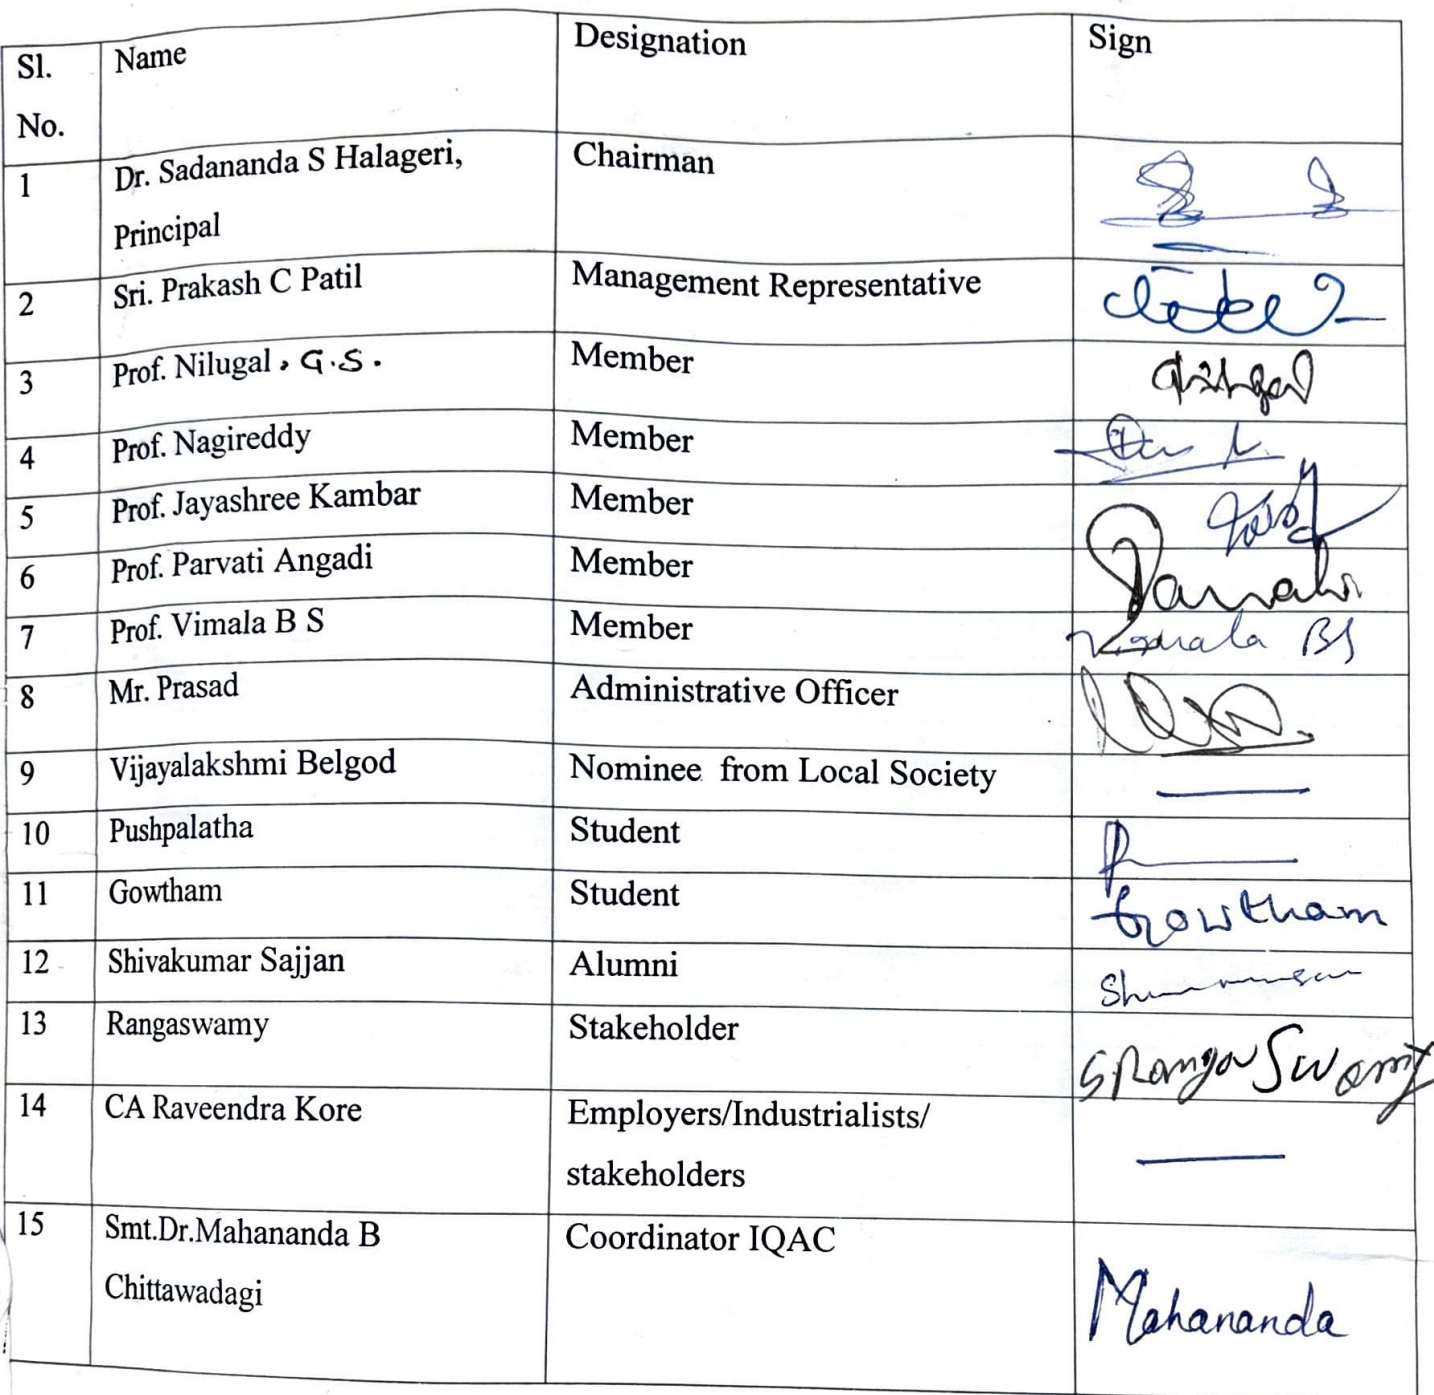 Sl. No. Name Designation Sign
1 Dr. Sadananda S Halageri, Chairman
Principal
2 Sri. Prakash C Patil Management Representative
3 Prof. Nilugal, G.S. Member
4 Prof. Nagireddy Member
5 Prof. Jayashree Kambar Member
6 Prof. Parvati Angadi Member
7 Prof. Vimala B S Member Vimala BS
8 Mr. Prasad Administrative Officer
9 Vijayalakshmi Belgod Nominee from Local Society
10 Pushpalatha Student
11 Gowtham Student Gowtham
12 Shivakumar Sajjan Alumni
13 Rangaswamy Stakeholder S RangaSwamy
14 CA Raveendra Kore Employers/Industrialists/
stakeholders
15 Smt.Dr.Mahananda B Coordinator IQAC
Chittawadagi Mahananda